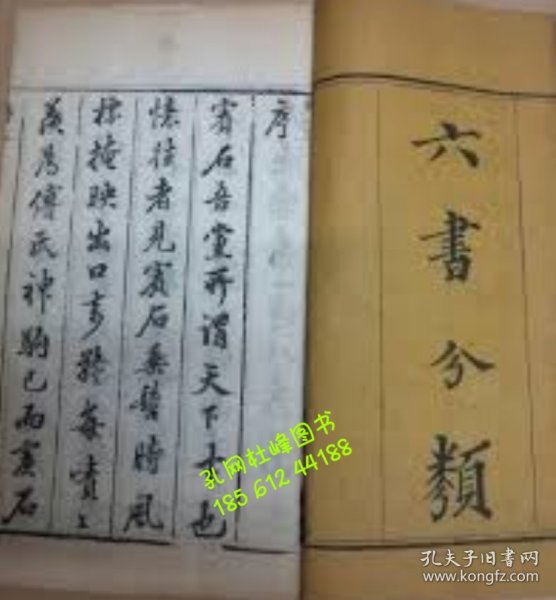 六書分類
序
賓石吾黨所謂天下士也
憶往者見賓石垂髫時風
標掩映出口多驚每嘖〻
羨為傅氏神駒已而賓石
孔网杜峰图书
185 612 44188
孔夫子旧书网
www.kongfz.com